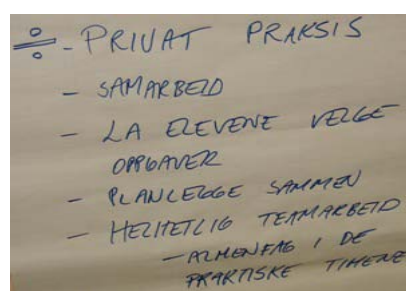 ÷ - PRIVAT PRAKSIS
- SAMARBEID
- LA ELEVENE VELGE
OPPGAVER
- PLANLEGGE SAMMEN
- HELHETLIG TEAMARBEID
- ALMENFAG I DE
PRAKTISKE TIMENE